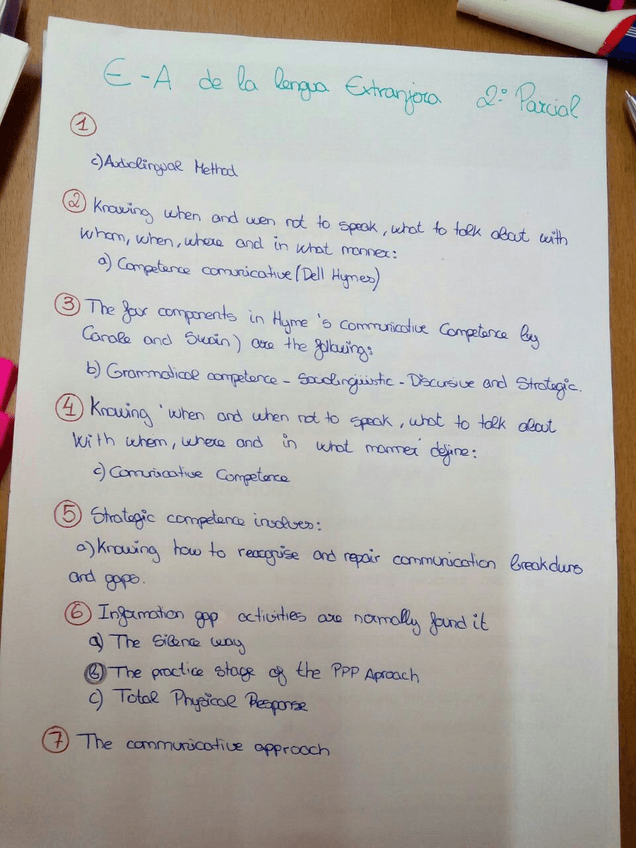 E-A de la lengua Extranjera 2º Parcial
1
c) Audiolingual Method
2 Knowing when and wen not to speak, what to talk about with
whom, when, where and in what manner:
a) Competence comunicative (Dell Hymes)
3 The four components in Hyme's communicative Competence by
Canale and Swain) are the following:
b) Grammatical competence - Sociolinguistic - Discursive and Strategic.
4 Knowing 'when and when not to speak, what to talk about
With whom, where and in what manner' define:
c) Comunicative Competence
5 Strategic competence involves:
a) Knowing how to recognise and repair communication breakduns
and gaps.
6 Information gap activities are normally found it
a) The Silence way
b) The practice stage of the PPP Aproach
c) Total Physical Response
7 The communicative approach